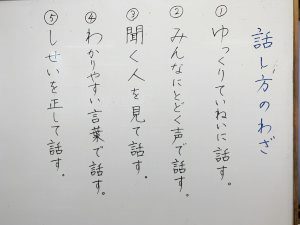 話し方のわざ
①ゆっくりていねいに話す。
②みんなにとどく声で話す。
③聞く人を見て話す。
④わかりやすい言葉で話す。
⑤しせいを正して話す。